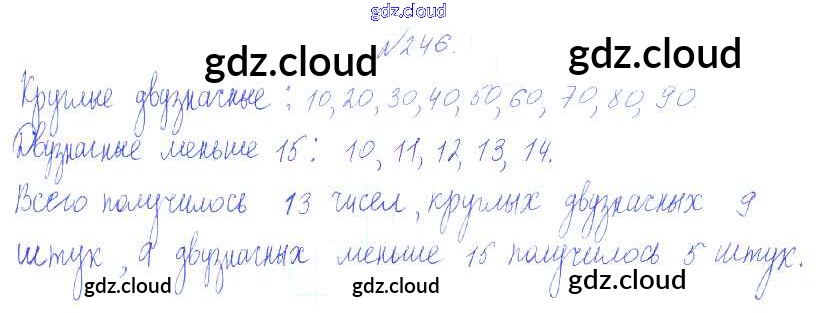 gdz.cloud
№246.
gdz.cloud gdz.cloud
Круглые двузначные: 10, 20, 30, 40, 50, 60, 70, 80, 90.
Двузначные меньше 15: 10, 11, 12, 13, 14.
Всего получилось 13 чисел, круглых двузначных 9
штук, а двузначных меньше 15 получилось 5 штук.
gdz.cloud gdz.cloud gdz.cloud